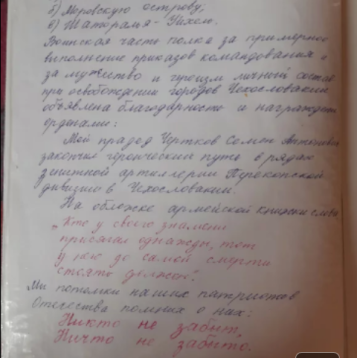 б) Моровскую острову;
в) Шаторалья-Уйхель.
Воинская часть полка за примерное
выполнение приказов командования и
за мужество и личный состав
при освобождении городов Чехословакии
объявлена благодарность и награждена
орденами:
Мой прадед Чертков Семен Антонович
закончил героический путь в рядах
зенитной артиллерии
дивизии в Чехословакии.
На обложке армейской книжки слова
„Кто у своего знамени
присягал однажды, тот
у него до самой смерти
стоять должен".
Мы потомки наших патриотов
Отечества помним о нас:
Никто не забыт,
Ничто не забыто.